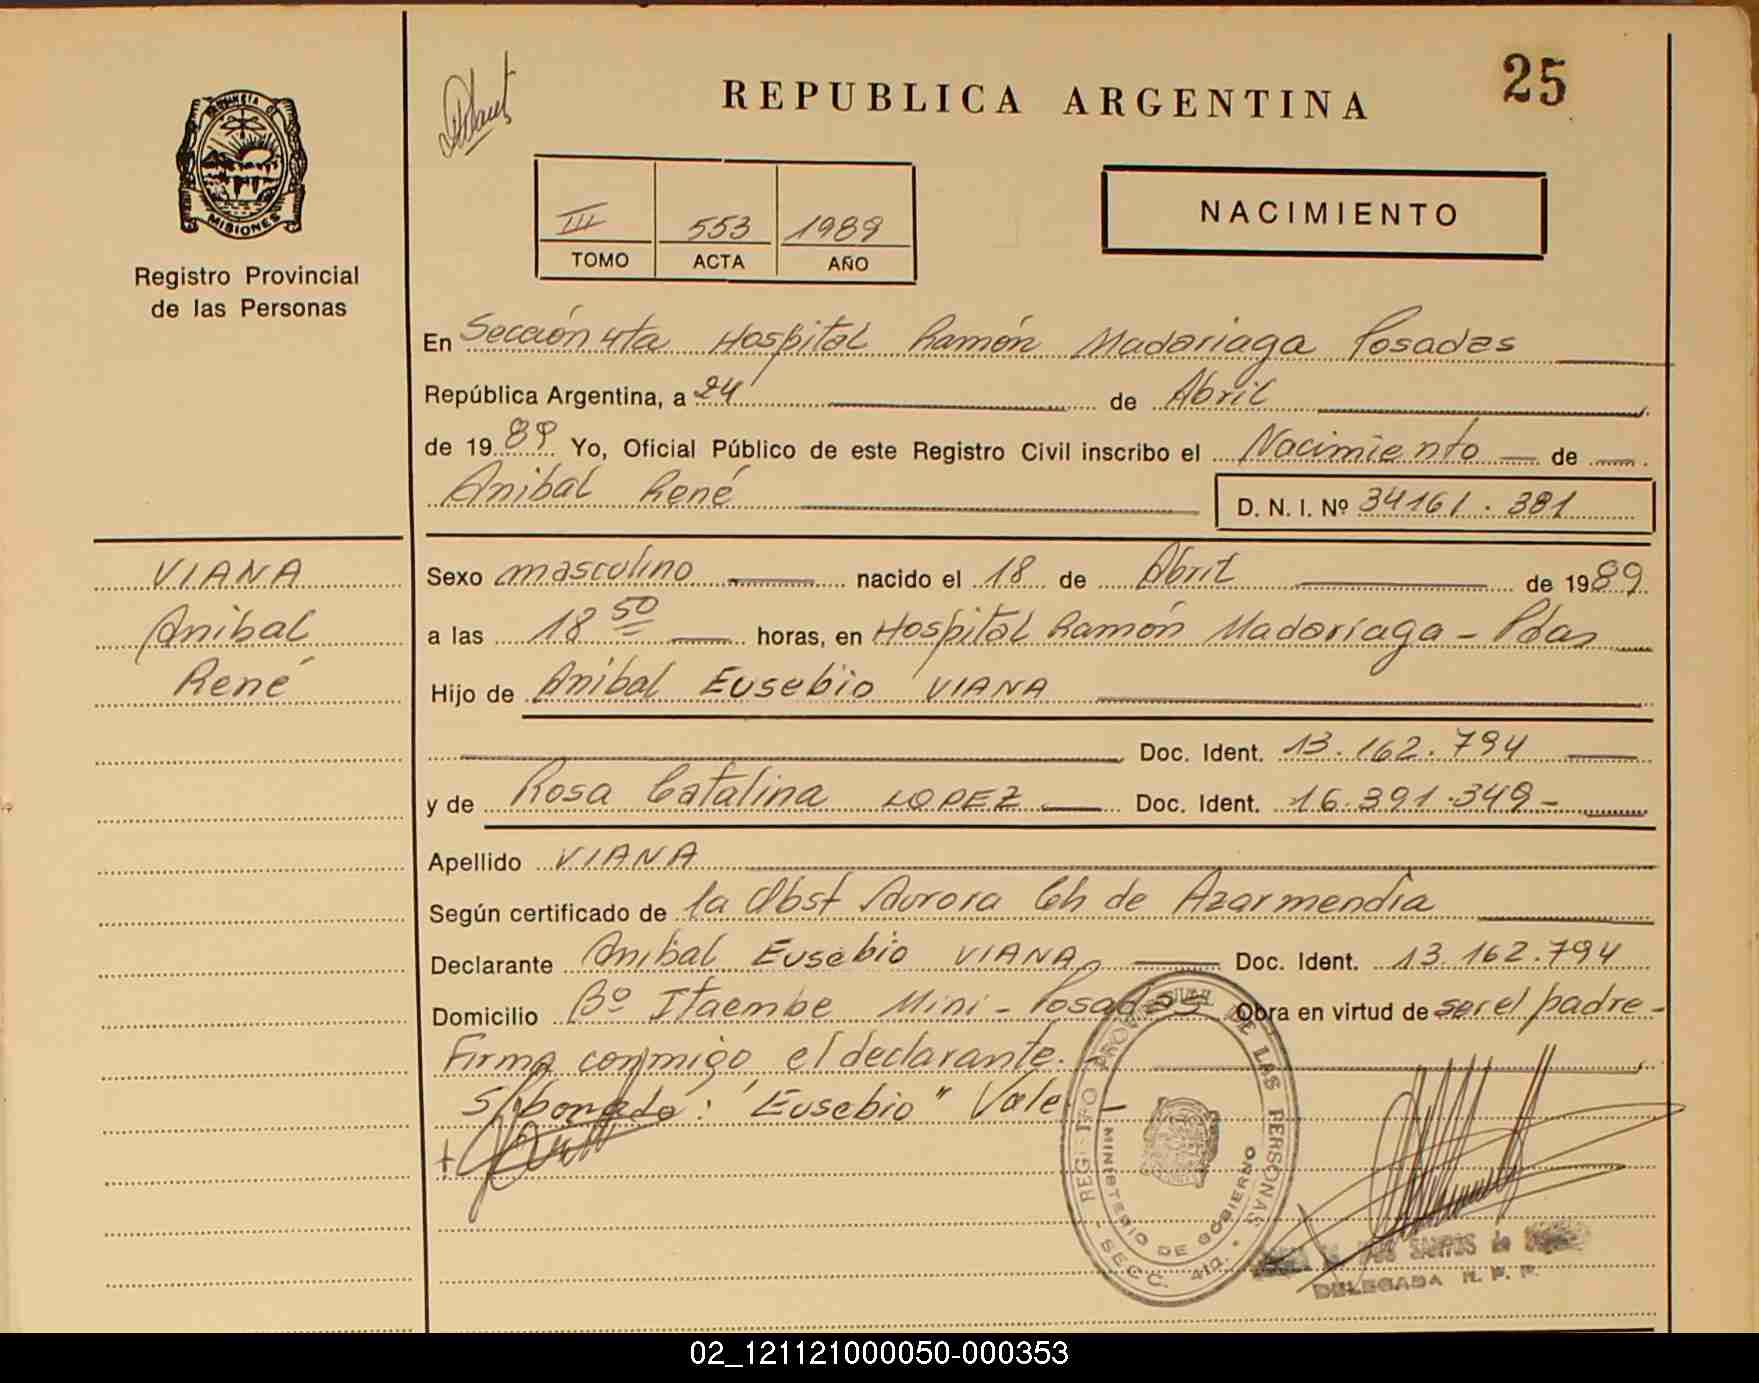 REPUBLICA ARGENTINA
25
PROVINCIA DE
MISIONES
Registro Provincial
de las Personas
III 553 1989
TOMO ACTA AÑO
NACIMIENTO
En Sección 4ta Hospital Ramón Madariaga Posadas
República Argentina, a 24 de Abril
de 1989 Yo, Oficial Público de este Registro Civil inscribo el Nacimiento de
Anibal René D. N. I. Nº 34161.381
VIANA
Anibal
René
Sexo masculino nacido el 18 de Abril de 1989
a las 18 50 horas, en Hospital Ramón Madariaga - Pdas
Hijo de Anibal Eusebio VIANA
Doc. Ident. 13.162.794
y de Rosa Catalina LOPEZ Doc. Ident. 16.391.349-
Apellido VIANA
Según certificado de la Obst Aurora Ch de Azarmendia
Declarante Anibal Eusebio VIANA Doc. Ident. 13.162.794
Domicilio Bº Itaembe Mini - Posadas Obra en virtud de ser el padre-
Firma conmigo el declarante.
S/borrado: "Eusebio" Vale
REGISTRO PROVINCIAL DE LAS PERSONAS
MINISTERIO DE GOBIERNO
SECC. 4ta.
SANTOS de
DELEGADA R. P. P.
02_121121000050-000353